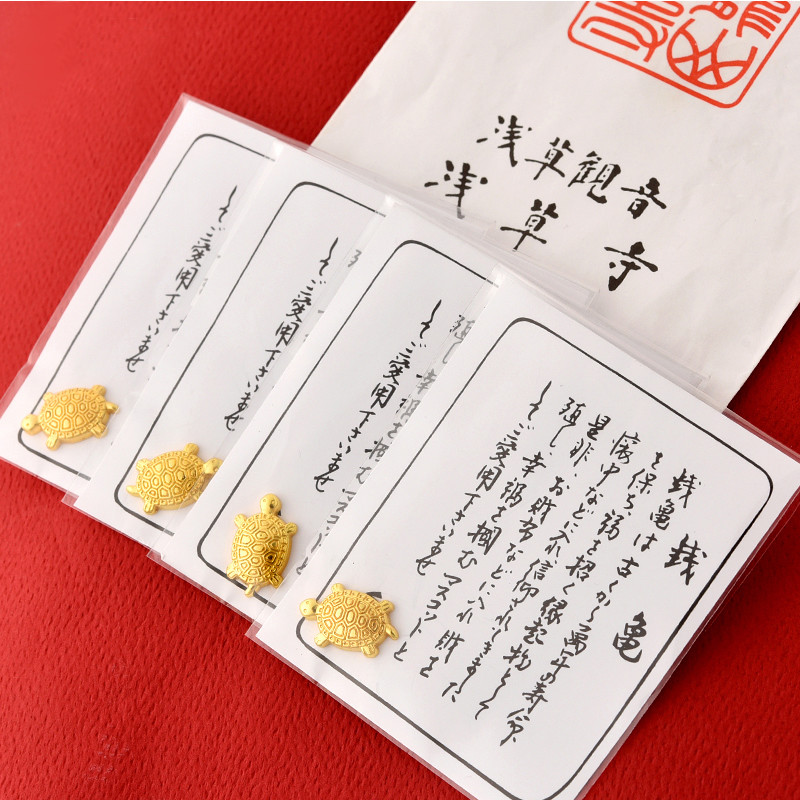 浅草観音
浅草寺
銭亀
銭亀は古くから萬年の寿命
を保ち福を招く縁起物として
懐中などに入れ信仰されてきました
是非お財布などに入れ財を
殖し幸福を掴むマスコットと
してご愛用下さいませ
殖し幸福を掴むマスコットと
してご愛用下さいませ
してご愛用下さいませ
してご愛用下さいませ